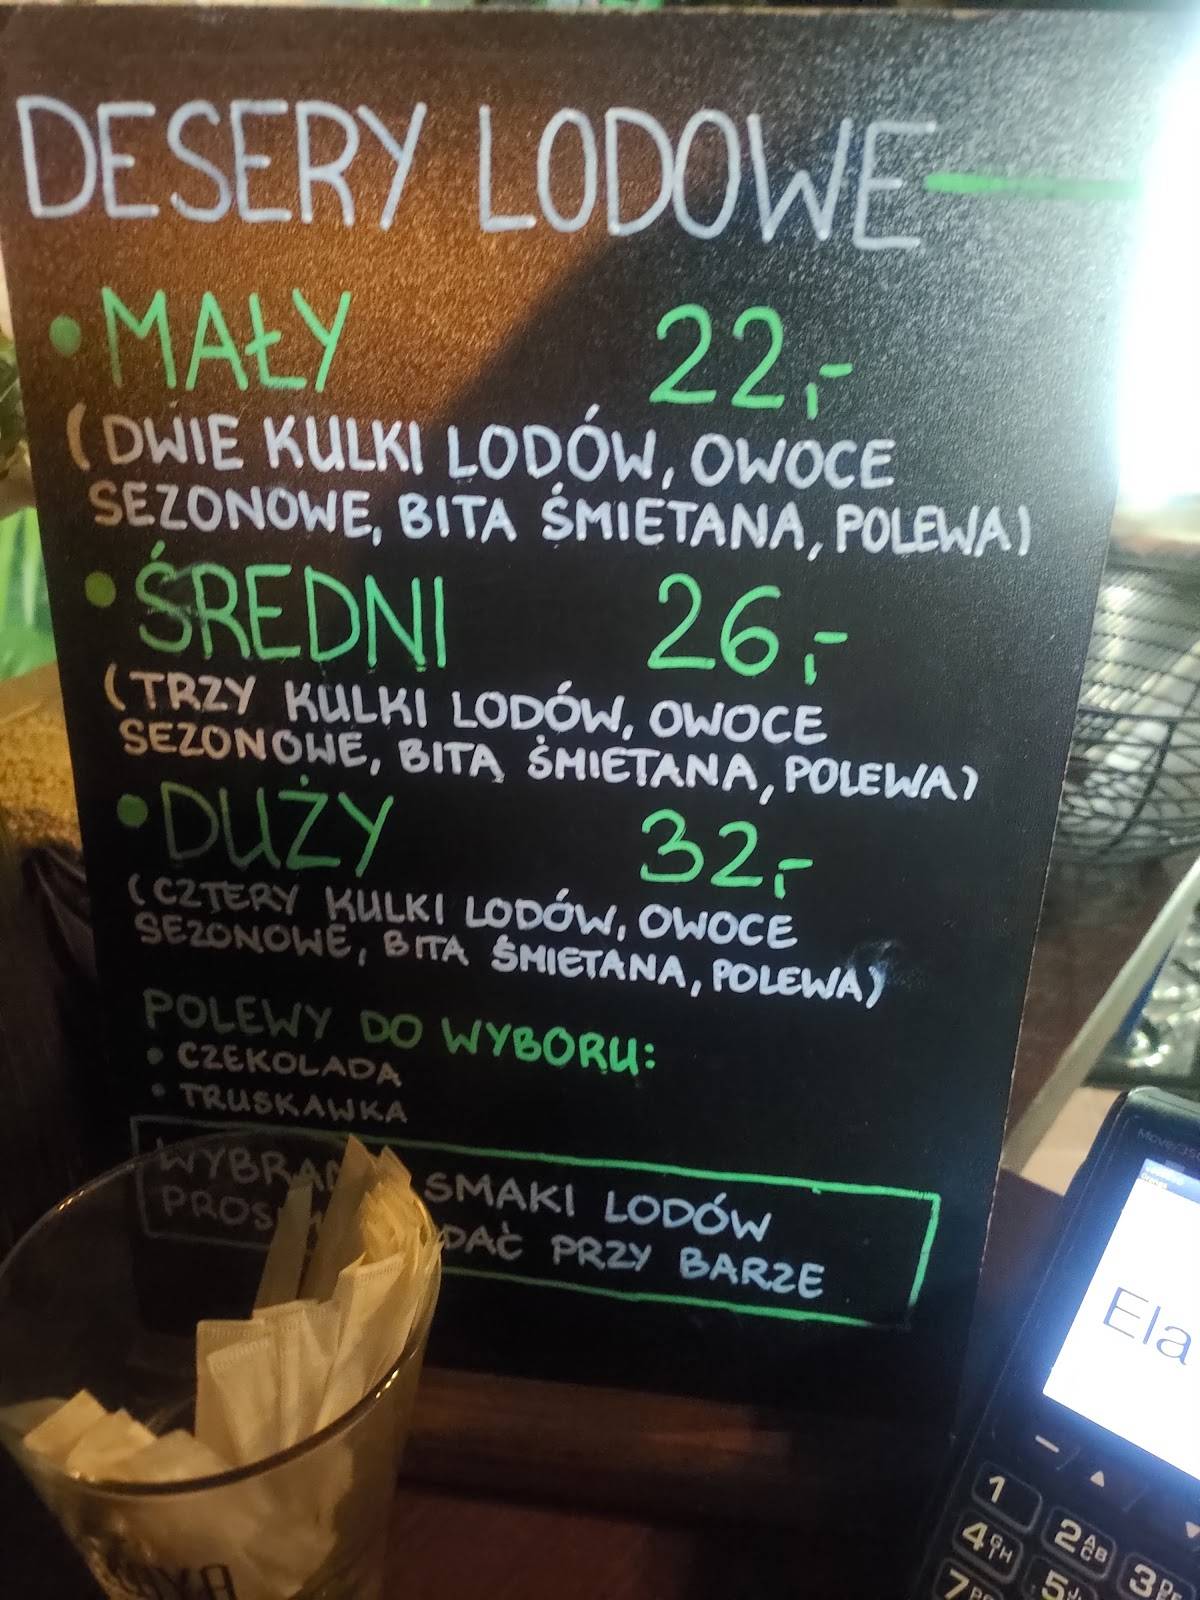 DESERY LODOWE
• MAŁY 22,-
(DWIE KULKI LODÓW, OWOCE
SEZONOWE, BITA ŚMIETANA, POLEWA)
• ŚREDNI 26,-
(TRZY KULKI LODÓW, OWOCE
SEZONOWE, BITA ŚMIETANA, POLEWA)
• DUŻY 32,-
(CZTERY KULKI LODÓW, OWOCE
SEZONOWE, BITA ŚMIETANA, POLEWA)
POLEWY DO WYBORU:
• CZEKOLADA
• TRUSKAWKA
SMAKI LODÓW
PRZY BARZE
Ela
1
2 ABC
4 GHI